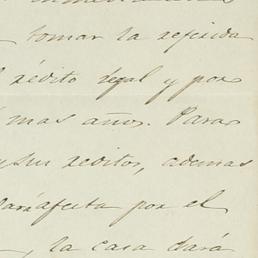 tomar la referida
rédito legal y por
mas años. Para
y sus reditos, ademas
afecta por el
, la casa dará